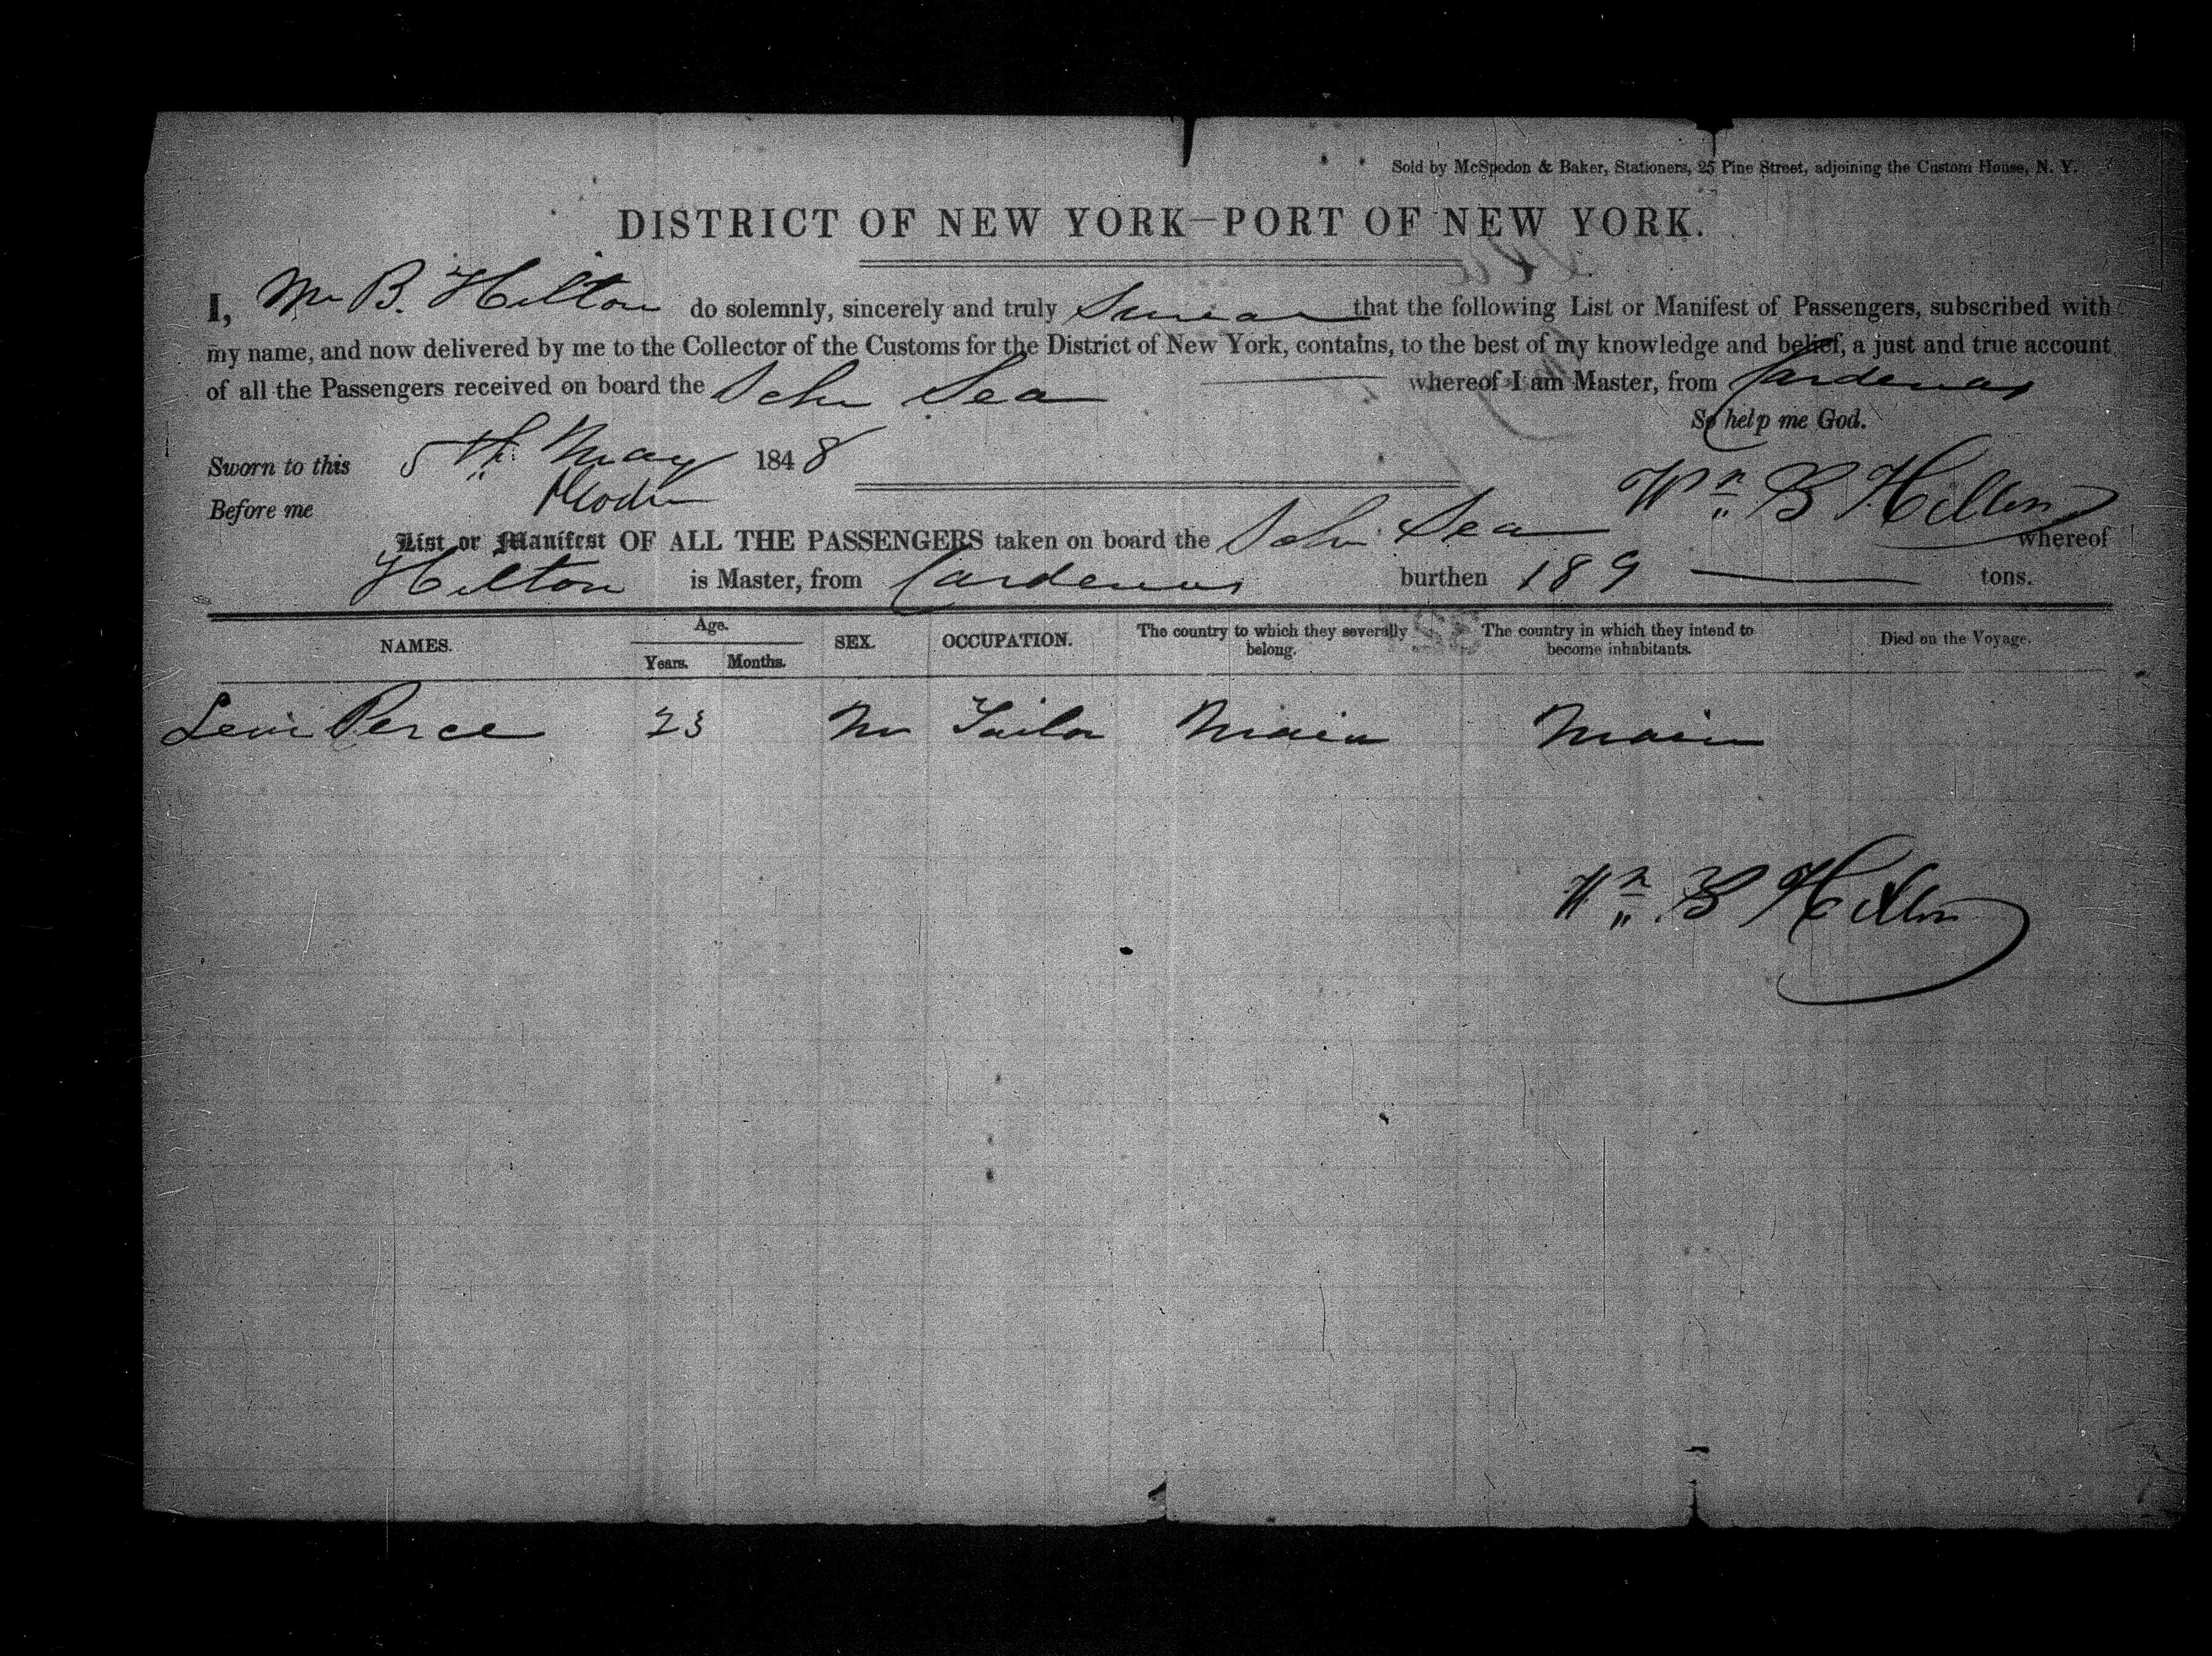 Sold by McSpedon & Baker, Stationers, 25 Pine Street, adjoining the Custom House, N. Y.
DISTRICT OF NEW YORK—PORT OF NEW YORK.
I, Wm B. Hilton do solemnly, sincerely and truly Swear that the following List or Manifest of Passengers, subscribed with
my name, and now delivered by me to the Collector of the Customs for the District of New York, contains, to the best of my knowledge and belief, a just and true account
of all the Passengers received on board the Schr Sea whereof I am Master, from Cardenas
So help me God.
Sworn to this 5th May 1848
Before me
Wm B Hilton
List or Manifest OF ALL THE PASSENGERS taken on board the Schr Sea whereof
Hilton is Master, from Cardenas burthen 189 tons.
NAMES. Age. Years. Months. SEX. OCCUPATION. The country to which they severally belong. The country in which they intend to become inhabitants. Died on the Voyage.
Levi Perce 23 M Tailor Main Main
Wm B Hilton